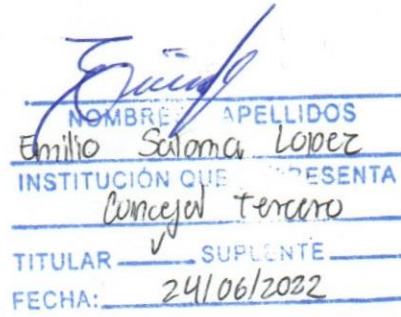 NOMBRE APELLIDOS
Emilio Saloma Lopez
INSTITUCIÓN QUE
Concejal tercero
TITULAR ✓ SUPLENTE
FECHA: 24/06/2022